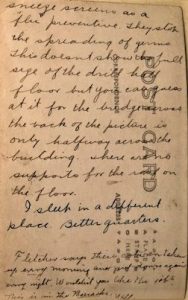 sneeze screens as a
flu preventive. They stop
the spreading of germs
This doesn't show the full
size of the drill hall
floor but you can guess
at it for the bridge across
the back of the picture is
only halfway across the
building. there are no
supports for the roof on
the floor.
I sleep in a different
place. Better quarters.
Fletcher says there
up every morning and again
every night. Wouldn't you like the job?
This is in the Barracks
POST CARD